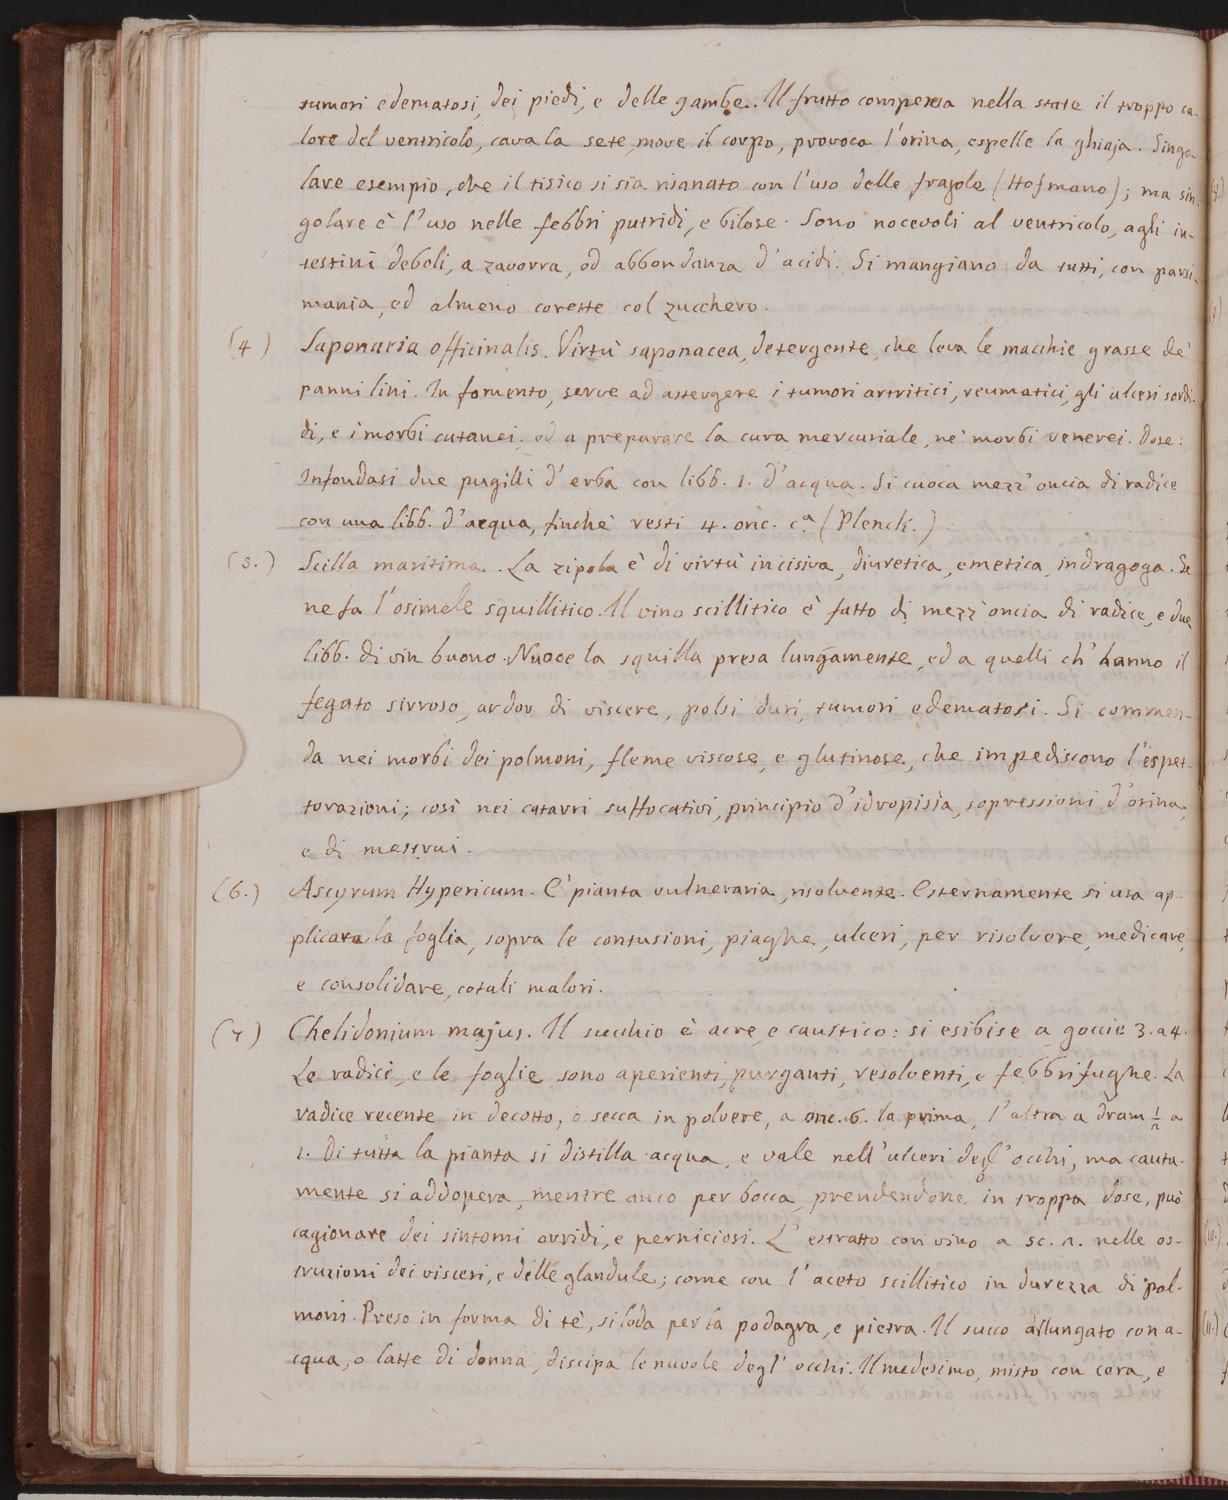 tumori edematosi, dei piedi, e delle gambe. Il frutto compensa nella state il troppo ca-
lore del ventricolo, cava la sete, move il corpo, provoca l'orina, espelle la ghiaja. Singo-
lare esempio, che il tisico si sia risanato con l'uso delle fragole (Hofmano); ma sin-
golare è l'uso nelle febbri putridi, e bilose. Sono nocevoli al ventricolo, agli in-
testini deboli, a zavorra, od abbondanza d'acidi. Si mangiano da tutti, con parsi-
mania, ed almeno corette col zucchero.
(4) Saponaria officinalis. Virtù saponacea, detergente, che leva le macchie grasse de'
panni lini. In fomento, serve ad astergere i tumori artritici, reumatici, gli ulceri sordi-
di, e i morbi cutanei. ed a preparare la cura mercuriale, ne' morbi venerei. Dose:
Infondasi due pugilli d'erba con libb. 1. d'acqua. Si cuoca mezz'oncia di radice
con una libb. d'acqua, finchè resti 4. onc. c.a (Plenck.)
(5.) Scilla maritima. La zipola è di virtù incisiva, diuretica, emetica, indragoga. Se
ne fa l'osimele squillitico. Il vino scillitico è fatto di mezz'oncia di radice, e due
libb. di vin buono. Nuoce la squilla presa lungamente, ed a quelli ch'hanno il
fegato sirroso, ardor di viscere, polsi duri, tumori edematosi. Si commen-
da nei morbi dei polmoni, fleme viscose, e glutinose, che impediscono l'espet-
torazioni; così nei catarri suffocativi, principio d'idropisìa, sopressioni d'orina,
e di mestrui.
(6.) Ascyrum Hypericum. È pianta vulneraria, risolvente. Esternamente si usa ap-
plicata la foglia, sopra le contusioni, piaghe, ulceri, per risolvere, medicare,
e consolidare, cotali malori.
(7) Chelidonium majus. Il succhio è acre, e caustico: si esibise a goccie 3. a 4.
Le radici, e le foglie sono aperienti, purganti, resolventi, e febbrifughe. La
radice recente in decotto, o secca in polvere, a onc. 6. la prima, l'altra a dram 1/2 a
1. Di tutta la pianta si distilla acqua, e vale nell'ulceri degl'occhi, ma cauta-
mente si addopera, mentre anco per bocca, prendendone in troppa dose, può
cagionare dei sintomi orridi, e perniciosi. L'estratto con vino a sc. 1. nelle os-
truzioni dei visceri, e delle glandule; come con l'aceto scillitico in durezza di pol-
moni. Preso in forma di tè, si loda per la podagra, e pietra. Il succo allungato con a-
cqua, o latte di donna, discipa le nuvole degl'occhi. Il medesimo, misto con cera, e